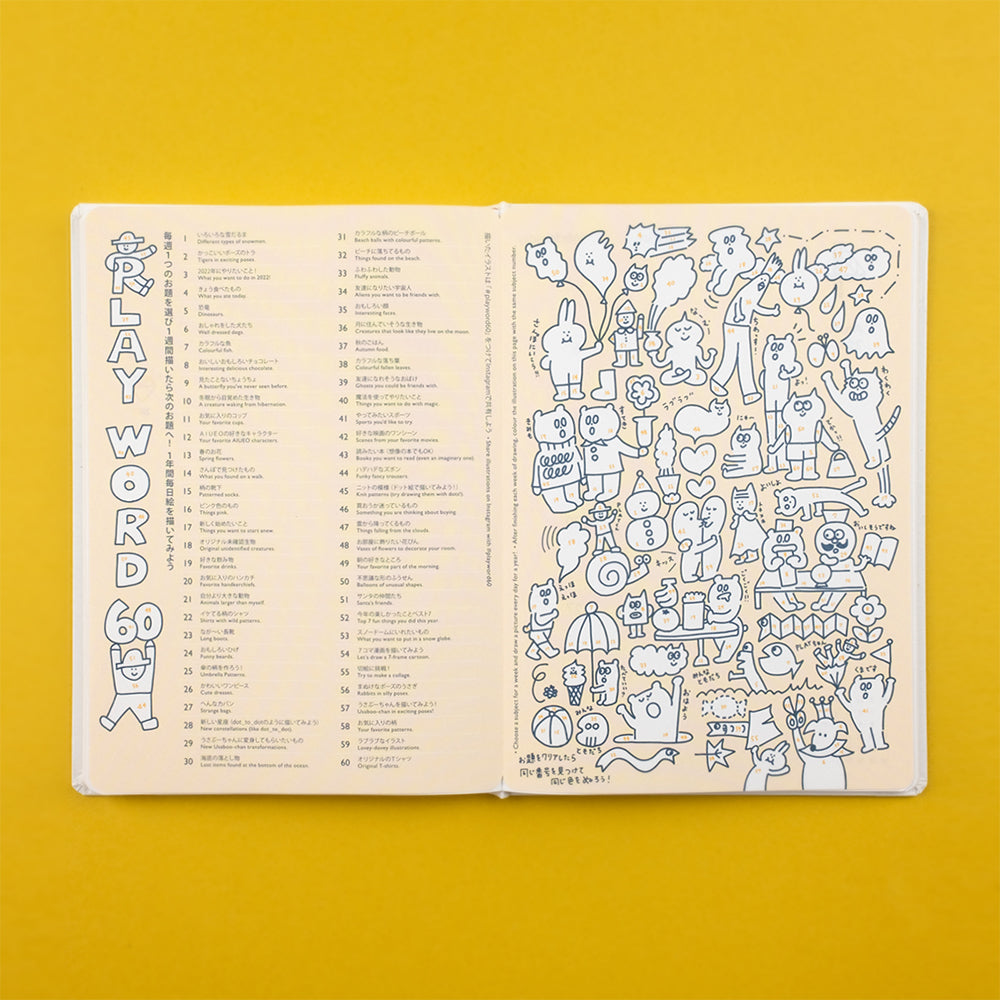 PLAY WORD 60
毎週1つのお題を選び1週間描いたら次のお題へ!1年間毎日絵を描いてみよう
1 いろいろな雪だるま
Different types of snowmen.
2 かっこいいポーズのトラ
Tigers in exciting poses.
3 2022年にやりたいこと!
What you want to do in 2022!
4 きょう食べたもの
What you ate today.
5 恐竜
Dinosaurs.
6 おしゃれをした犬たち
Well dressed dogs.
7 カラフルな魚
Colourful fish.
8 おいしいおもしろいチョコレート
Interesting delicious chocolate.
9 見たことないちょうちょ
A butterfly you've never seen before.
10 冬眠から目覚めた生き物
A creature waking from hibernation.
11 お気に入りのコップ
Your favorite cups.
12 AIUEOの好きなキャラクター
Your favorite AIUEO characters.
13 春のお花
Spring flowers.
14 さんぽで見つけたもの
What you found on a walk.
15 柄の靴下
Patterned socks.
16 ピンク色のもの
Things pink.
17 新しく始めたいこと
Things you want to start anew.
18 オリジナル未確認生物
Original unidentified creatures.
19 好きな飲み物
Favorite drinks.
20 お気に入りのハンカチ
Favorite handkerchiefs.
21 自分より大きな動物
Animals larger than myself.
22 イケてる柄のシャツ
Shirts with wild patterns.
23 なが〜い長靴
Long boots.
24 おもしろいひげ
Funny beards.
25 傘の柄を作ろう!
Umbrella Patterns.
26 かわいいワンピース
Cute dresses.
27 へんなカバン
Strange bags.
28 新しい星座(dot_to_dotのように描いてみよう)
New constellations (like dot_to_dot).
29 うさぶーちゃんに変身してもらいたいもの
New Usaboo-chan transformations.
30 海底の落とし物
Lost items found at the bottom of the ocean.
31 カラフルな柄のビーチボール
Beach balls with colourful patterns.
32 ビーチに落ちてるもの
Things found on the beach.
33 ふわふわした動物
Fluffy animals.
34 友達になりたい宇宙人
Aliens you want to be friends with.
35 おもしろい顔
Interesting faces.
36 月に住んでいそうな生き物
Creatures that look like they live on the moon.
37 秋のごはん
Autumn food.
38 カラフルな落ち葉
Colourful fallen leaves.
39 友達になれそうなおばけ
Ghosts you could be friends with.
40 魔法を使ってやりたいこと
Things you want to do with magic.
41 やってみたいスポーツ
Sports you'd like to try.
42 好きな映画のワンシーン
Scenes from your favorite movies.
43 読みたい本(想像の本でもOK)
Books you want to read (even an imaginary one).
44 ハデハデなズボン
Funky fancy trousers.
45 ニットの模様(ドット絵で描いてみよう!)
Knit patterns (try drawing them with dots!).
46 買おうか迷っているもの
Something you are thinking about buying.
47 雲から降ってくるもの
Things falling from the clouds.
48 お部屋に飾りたい花びん
Vases of flowers to decorate your room.
49 朝の好きなところ
Your favorite part of the morning.
50 不思議な形のふうせん
Balloons of unusual shapes.
51 サンタの仲間たち
Santa's friends.
52 今年の楽しかったことベスト7
Top 7 fun things you did this year
53 スノードームにいれたいもの
What you want to put in a snow globe.
54 7コマ漫画を描いてみよう
Let's draw a 7-frame cartoon.
55 切絵に挑戦!
Try to make a collage.
56 まぬけなポーズのうさぎ
Rabbits in silly poses.
57 うさぶーちゃんを描いてみよう!
Usaboo-chan in exciting poses!
58 お気に入りの柄
Your favorite patterns.
59 ラブラブなイラスト
Lovey-dovey illustrations.
60 オリジナルのTシャツ
Original T-shirts.
描いたイラストは「#playword60」をつけてInstagramで共有しよう • Share illustration on Instagram with #playword60
• Choose a subject for a week and draw a picture every day for a year! • After finishing each week of drawing, colour the illustration on this page with the same subject number.
ラブラブ
わくわく
よいしょ
おいしそうですね
えっほ
えっほ
キッス
PLAYちゃん
みんな
ともだち
くまです
おはよう
みんな
ともだち
お題をクリアしたら
同じ番号を見つけて
同じ色をぬろう!